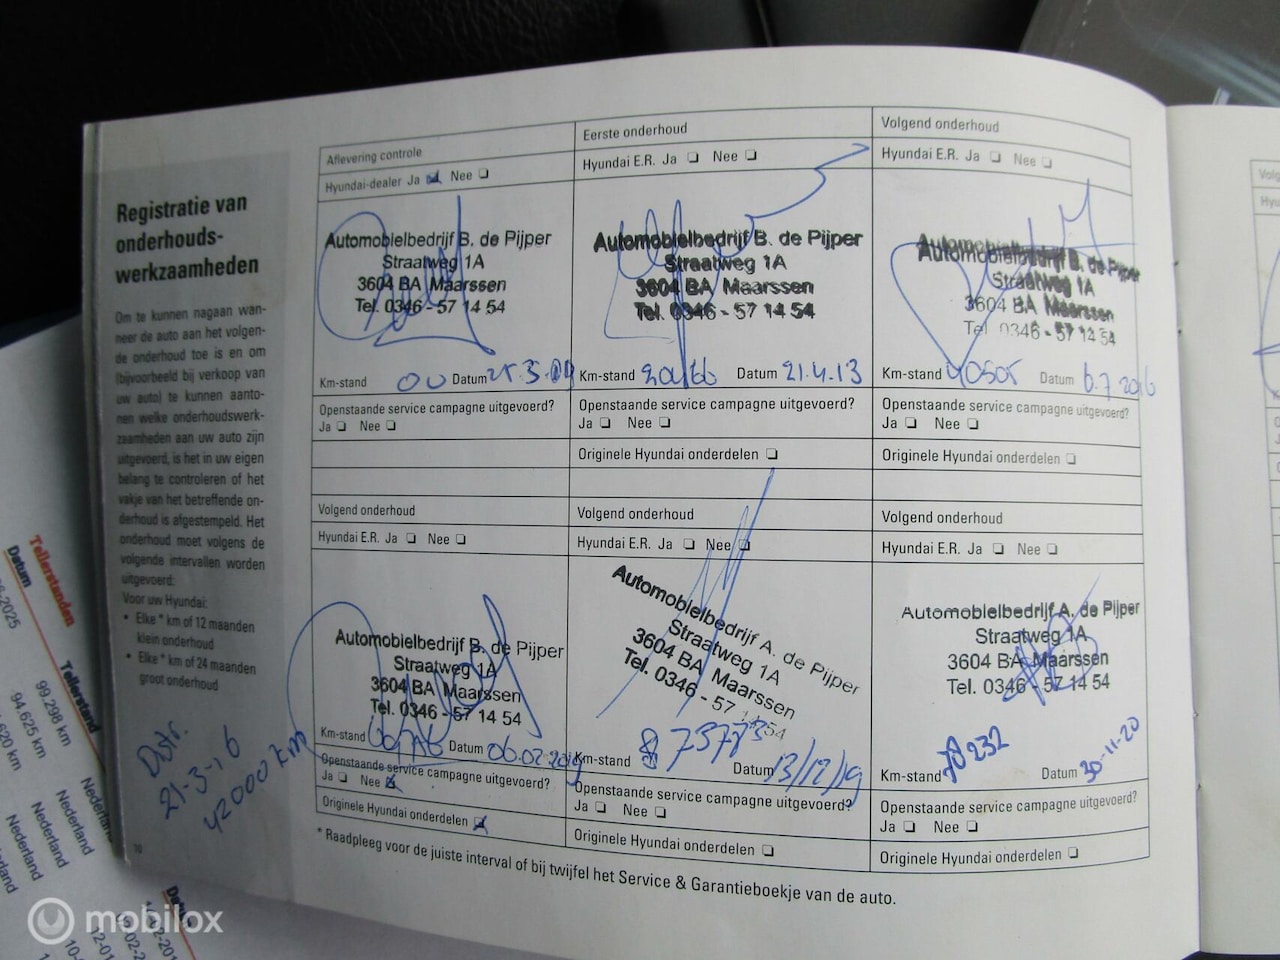 Registratie van
onderhouds-
werkzaamheden
Om te kunnen nagaan wan-
neer de auto aan het volgen-
de onderhoud toe is en om
(bijvoorbeeld bij verkoop van
uw auto) te kunnen aanto-
nen welke onderhoudswerk-
zaamheden aan uw auto zijn
uitgevoerd, is het in uw eigen
belang te controleren of het
vakje van het betreffende on-
derhoud is afgestempeld. Het
onderhoud moet volgens de
volgende intervallen worden
uitgevoerd:
Voor uw Hyundai:
• Elke * km of 12 maanden
klein onderhoud
• Elke * km of 24 maanden
groot onderhoud
21-3-16
42000 km
Aflevering controle
Hyundai-dealer Ja Nee
Automobielbedrijf B. de Pijper
Straatweg 1A
3604 BA Maarssen
Tel. 0346 - 57 14 54
Km-stand Datum
Openstaande service campagne uitgevoerd?
Ja Nee
Eerste onderhoud
Hyundai E.R. Ja Nee
Automobielbedrijf B. de Pijper
Straatweg 1A
3604 BA Maarssen
Tel. 0346 - 57 14 54
Km-stand Datum 21.4.13
Openstaande service campagne uitgevoerd?
Ja Nee
Originele Hyundai onderdelen
Volgend onderhoud
Hyundai E.R. Ja Nee
Automobielbedrijf B. de Pijper
Straatweg 1A
3604 BA Maarssen
Tel. 0346 - 57 14 54
Km-stand Datum
Openstaande service campagne uitgevoerd?
Ja Nee
Originele Hyundai onderdelen
Volgend onderhoud
Hyundai E.R. Ja Nee
Automobielbedrijf B. de Pijper
Straatweg 1A
3604 BA Maarssen
Tel. 0346 - 57 14 54
Km-stand Datum
Openstaande service campagne uitgevoerd?
Ja Nee
Originele Hyundai onderdelen
Volgend onderhoud
Hyundai E.R. Ja Nee
Automobielbedrijf A. de Pijper
Straatweg 1A
3604 BA Maarssen
Tel. 0346 - 57 14 54
Km-stand Datum 13/12/19
Openstaande service campagne uitgevoerd?
Ja Nee
Originele Hyundai onderdelen
Volgend onderhoud
Hyundai E.R. Ja Nee
Automobielbedrijf A. de Pijper
Straatweg 1A
3604 BA Maarssen
Tel. 0346 - 57 14 54
Km-stand 78232 Datum 30-11-20
Openstaande service campagne uitgevoerd?
Ja Nee
Originele Hyundai onderdelen
* Raadpleeg voor de juiste interval of bij twijfel het Service & Garantieboekje van de auto.
Tellerstanden
Datum Tellerstand
99.298 km Nederland
94.625 km Nederland
Nederland
mobilox